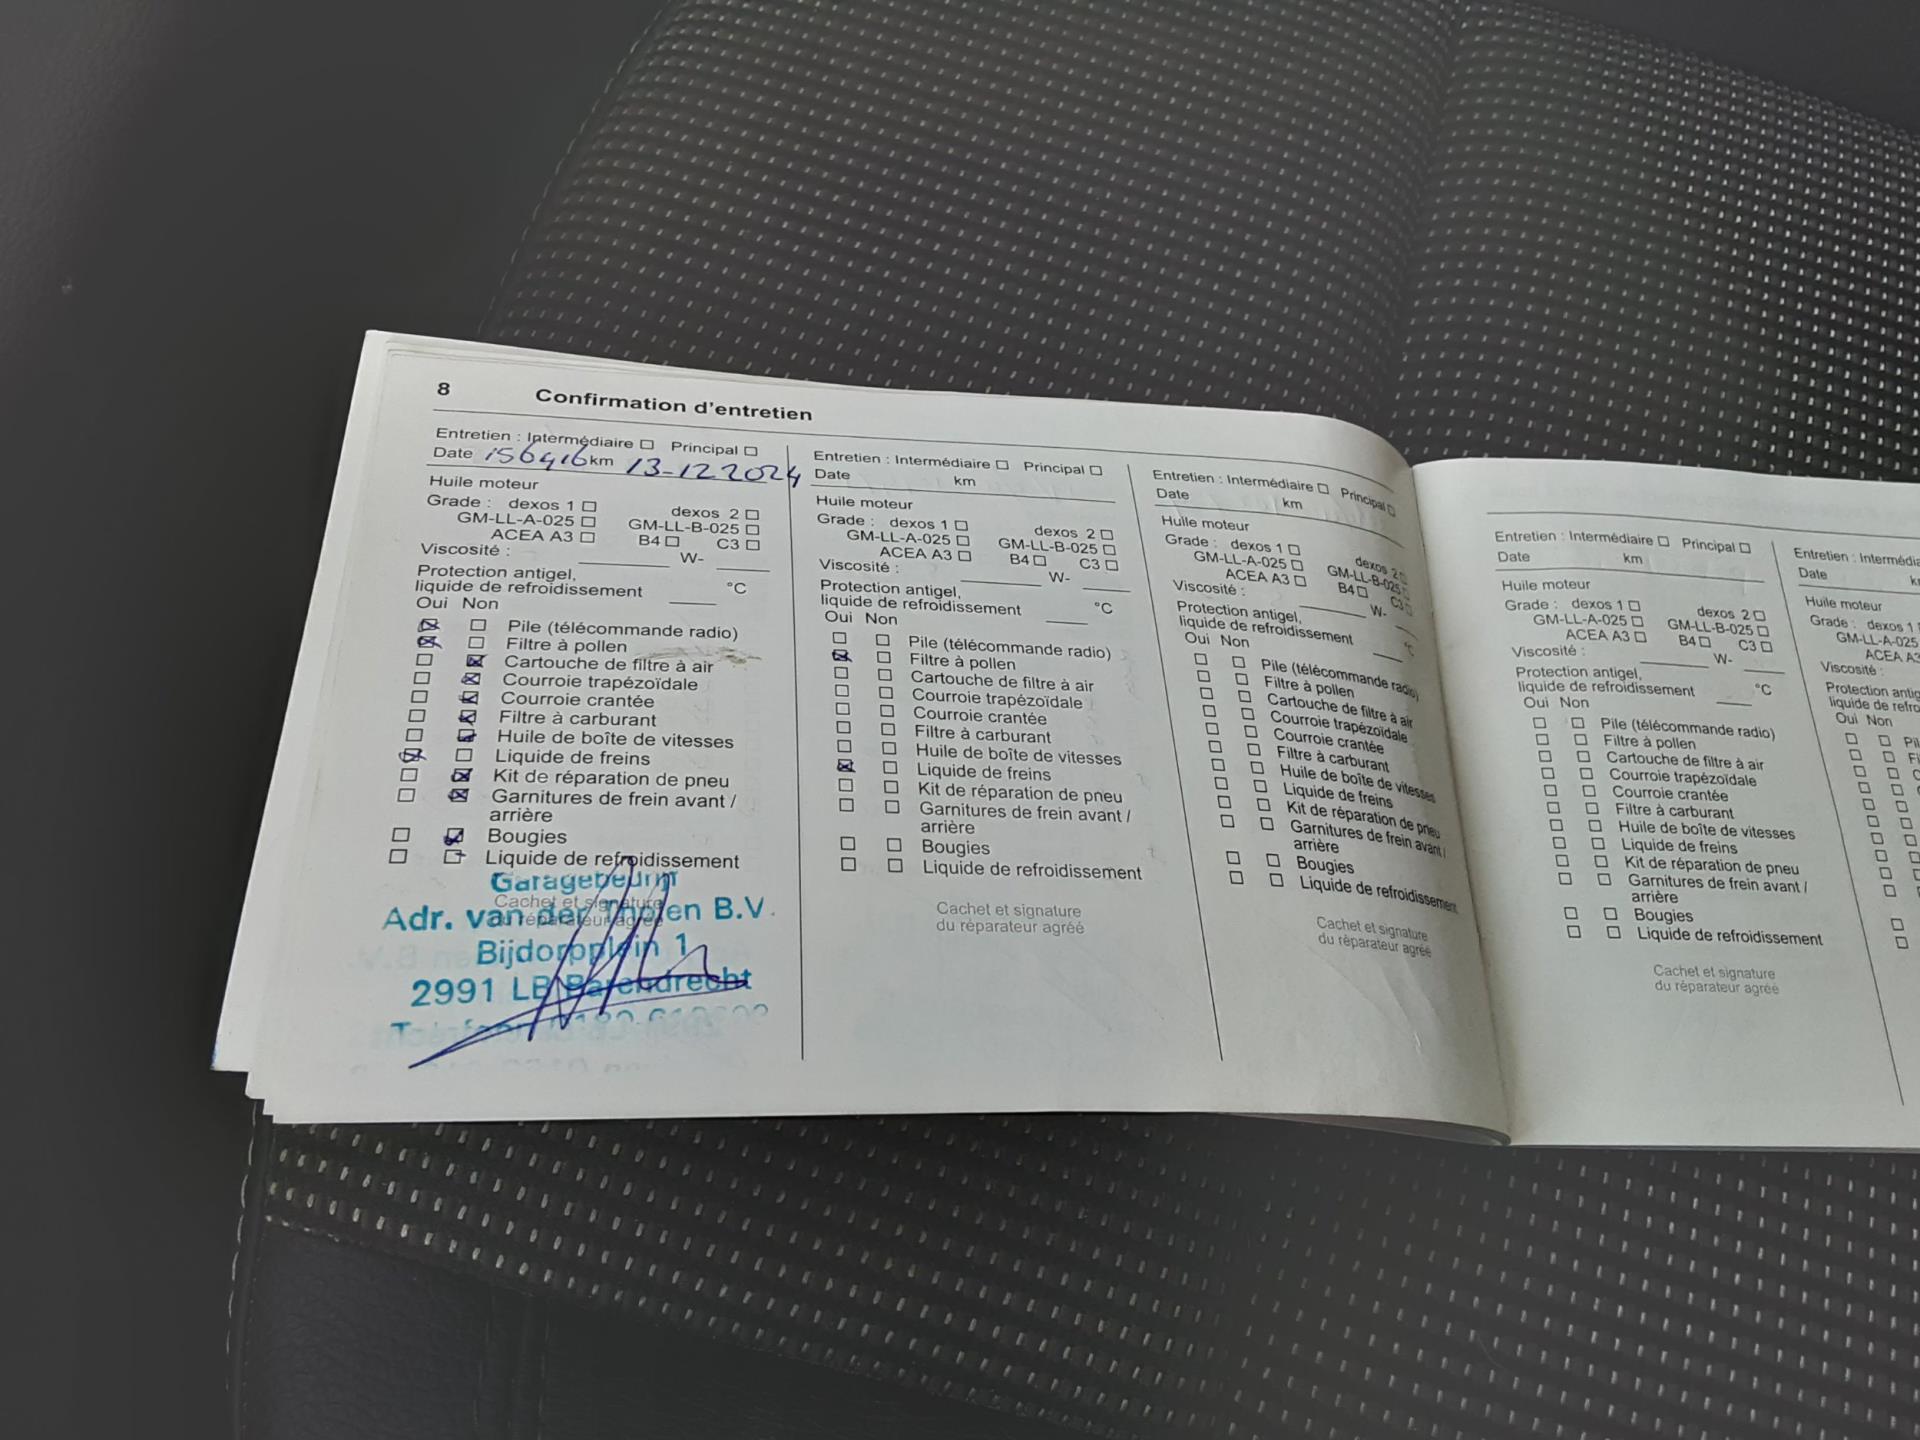 8 Confirmation d'entretien
Entretien : Intermédiaire ☐ Principal ☐
Date 156916 km 13-12 2024
Huile moteur
Grade : dexos 1 ☐ dexos 2 ☐
GM-LL-A-025 ☐ GM-LL-B-025 ☐
ACEA A3 ☐ B4 ☐ C3 ☐
Viscosité : W-
Protection antigel,
liquide de refroidissement °C
Oui Non
☒ ☐ Pile (télécommande radio)
☒ ☐ Filtre à pollen
☐ ☒ Cartouche de filtre à air
☐ ☒ Courroie trapézoïdale
☐ ☒ Courroie crantée
☐ ☒ Filtre à carburant
☐ ☒ Huile de boîte de vitesses
☒ ☐ Liquide de freins
☐ ☒ Kit de réparation de pneu
☐ ☒ Garnitures de frein avant /
arrière
☐ ☒ Bougies
☐ ☒ Liquide de refroidissement
Cachet et signature
du réparateur agréé
Garagebedrijf
Adr. van der Tholen B.V.
Bijdorpplein 1
2991 LB Barendrecht
Entretien : Intermédiaire ☐ Principal ☐
Date km
Huile moteur
Grade : dexos 1 ☐ dexos 2 ☐
GM-LL-A-025 ☐ GM-LL-B-025 ☐
ACEA A3 ☐ B4 ☐ C3 ☐
Viscosité : W-
Protection antigel,
liquide de refroidissement °C
Oui Non
☐ ☐ Pile (télécommande radio)
☒ ☐ Filtre à pollen
☐ ☐ Cartouche de filtre à air
☐ ☐ Courroie trapézoïdale
☐ ☐ Courroie crantée
☐ ☐ Filtre à carburant
☐ ☐ Huile de boîte de vitesses
☒ ☐ Liquide de freins
☐ ☐ Kit de réparation de pneu
☐ ☐ Garnitures de frein avant /
arrière
☐ ☐ Bougies
☐ ☐ Liquide de refroidissement
Cachet et signature
du réparateur agréé
Entretien : Intermédiaire ☐ Principal ☐
Date km
Huile moteur
Grade : dexos 1 ☐ dexos 2 ☐
GM-LL-A-025 ☐ GM-LL-B-025 ☐
ACEA A3 ☐ B4 ☐ C3 ☐
Viscosité : W-
Protection antigel,
liquide de refroidissement °C
Oui Non
☐ ☐ Pile (télécommande radio)
☐ ☐ Filtre à pollen
☐ ☐ Cartouche de filtre à air
☐ ☐ Courroie trapézoïdale
☐ ☐ Courroie crantée
☐ ☐ Filtre à carburant
☐ ☐ Huile de boîte de vitesses
☐ ☐ Liquide de freins
☐ ☐ Kit de réparation de pneu
☐ ☐ Garnitures de frein avant /
arrière
☐ ☐ Bougies
☐ ☐ Liquide de refroidissement
Cachet et signature
du réparateur agréé
Entretien : Intermédiaire ☐ Principal ☐
Date km
Huile moteur
Grade : dexos 1 ☐ dexos 2 ☐
GM-LL-A-025 ☐ GM-LL-B-025 ☐
ACEA A3 ☐ B4 ☐ C3 ☐
Viscosité : W-
Protection antigel,
liquide de refroidissement °C
Oui Non
☐ ☐ Pile (télécommande radio)
☐ ☐ Filtre à pollen
☐ ☐ Cartouche de filtre à air
☐ ☐ Courroie trapézoïdale
☐ ☐ Courroie crantée
☐ ☐ Filtre à carburant
☐ ☐ Huile de boîte de vitesses
☐ ☐ Liquide de freins
☐ ☐ Kit de réparation de pneu
☐ ☐ Garnitures de frein avant /
arrière
☐ ☐ Bougies
☐ ☐ Liquide de refroidissement
Cachet et signature
du réparateur agréé
Entretien :
Date
Huile moteur
Grade : dexos 1
GM-LL-A-025
ACEA A3
Viscosité :
Protection
liquide de
Oui Non